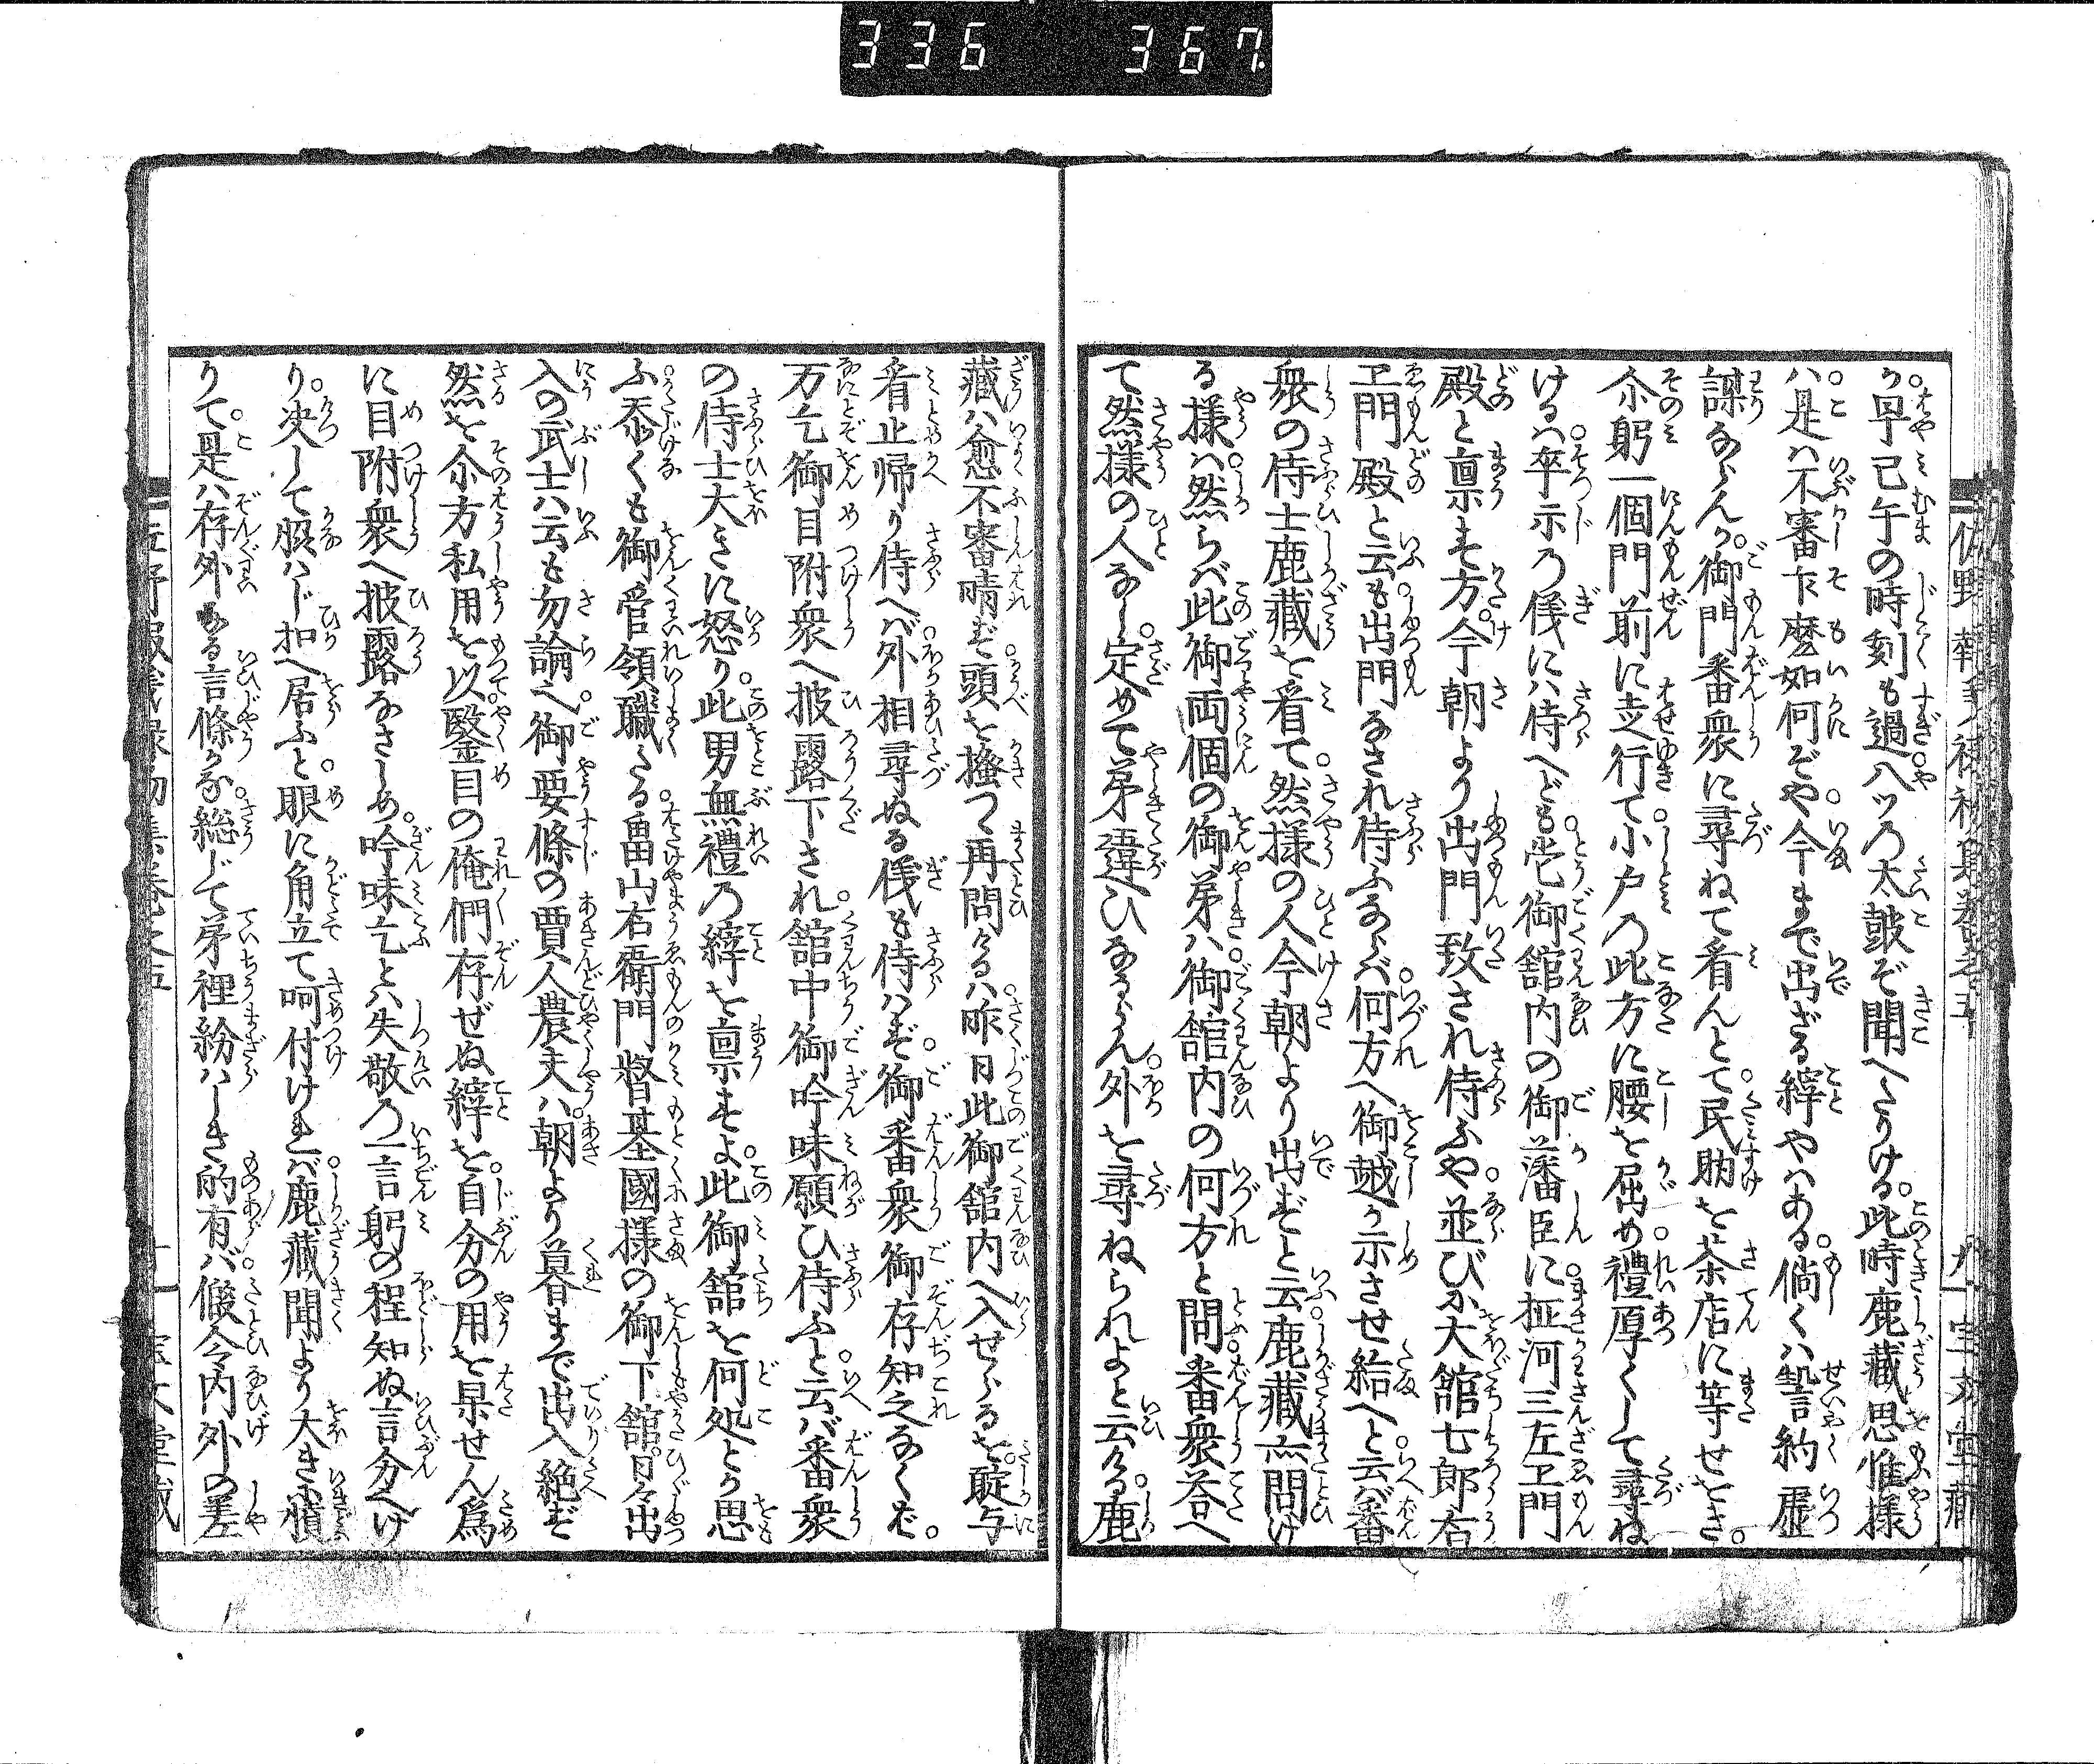 336 367
か。早己午の時刻も過八ツの太皷ぞ聞へたりける。此時鹿藏思惟様
ハ是ハ不審乍麽如何ぞや今まで出ざる縡やハある。倘くハ誓約虚
謀ならんか。御門番衆に尋ねて看んとて民助を茶店に等せをき。
尒躬一個門前に走行て小戸の此方に腰を屈め禮厚くして尋ね
けるハ卒示の儀にハ侍へども当御舘内の御藩臣に柾河三左エ門
殿と稟す方。今朝より出門致され侍ふや並びに大舘七郎右
エ門殿と云も出門なされ侍ふならバ何方へ御越か示させ給へと云バ番
衆の侍士鹿藏を看て。然様の人今朝より出ずと云鹿藏亦問け
る様ハ然らバ此御両個の御弟ハ御舘内の何方と問番衆荅へ
て然様の人なし。定めて弟違ひならん。外を尋ねられよと云ける。鹿
藏ハ愈不審晴ず頭を掻つゝ再問けるハ昨日此御舘内へ入せらるを。聢与
看止帰り侍へバ外相尋ぬる儀も侍ハず。御番衆御存知之なくば。
万乞御目附衆へ披露下され舘中御吟味願ひ侍ふと云バ番衆
の侍士大きに怒り。此男無禮の縡を稟すよ。此御舘を何処とか思
ふ忝くも御管領職たる畠山右衛門督基國様の御下舘日々出
入の武士ハ云も勿論へ御要條の賈人農夫ハ朝より暮まで出入絶ず
然を尒方私用を以鑿目の俺們存ぜぬ縡を。自分の用を果せん為
に目附衆へ披露なさしめ。吟味乞とハ失敬の一言躬の程知ぬ言分へけ
り。决して服ハじ扣へ居ふと。眼に角立て呵付けれバ鹿藏聞より大きに憤
りて。是ハ存外なる言條かな。総じて弟裡紛ハしき的有バ仮令内外の差